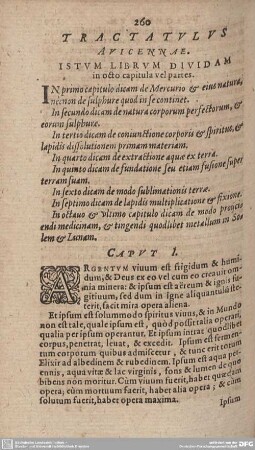 260
TRACTATVLVS
AVICENNAE.
ISTVM LIBRVM DIVIDAM
in octo capitula vel partes.
IN primo capitulo dicam de Mercurio & eius natura,
necnon de sulphure quod in se continet.
In secundo dicam de natura corporum perfectorum, &
eorum sulphure.
In tertio dicam de coniunctione corporis & spiritus, &
lapidis dissolutionem primam materiam.
In quarto dicam de extractione aquæ ex terra.
In quinto dicam de fundatione seu etiam fusione super
terram suam.
In sexto dicam de modo sublimationis terræ.
In septimo dicam de lapidis multiplicatione & fixione.
In octauo & vltimo capitulo dicam de modo
endi medicinam, & tingendi quodlibet metallum in So-
lem & Lunam.
CAPVT I.
ARGENTVM viuum est frigidum & humi-
dum, & Deus ex eo vel cum eo creauit om-
nia minera: & ipsum est aëreum & ignis fu-
gitiuum, sed dum in igne aliquantulum ste-
terit, facit mira opera aliena.
Et ipsum est solummodo spiritus viuus, & in Mundo
non est tale, quale ipsum est, quòd possit talia operari,
qualia per ipsum operantur. Et ipsum intrat quodlibet
corpus, penetrat, leuat, & excedit. Ipsum est fermen-
tum corporum quibus admiscetur, & tunc erit totum
Elixir ad albedinem & rubedinem. Ipsum est aqua per-
ennis, aqua vitæ & lac virginis, fons & lumen de quo
bibens non moritur. Cùm viuum fuerit, habet quædam
opera; cùm mortuum fuerit, habet alia opera; & cùm
solutum fuerit, habet opera maxima.
Ipsum
DFG